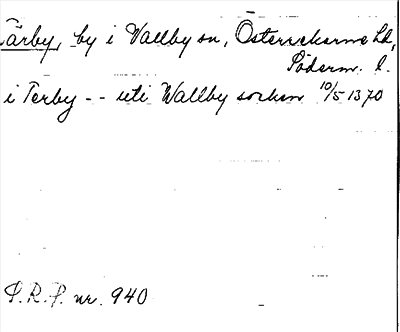 Tärby, by i Vallby sn, Österrekarne hd,
Söderm. l.
i Terby -- uti Wallby sochen 10/5 1370
S.R.P. nr. 940